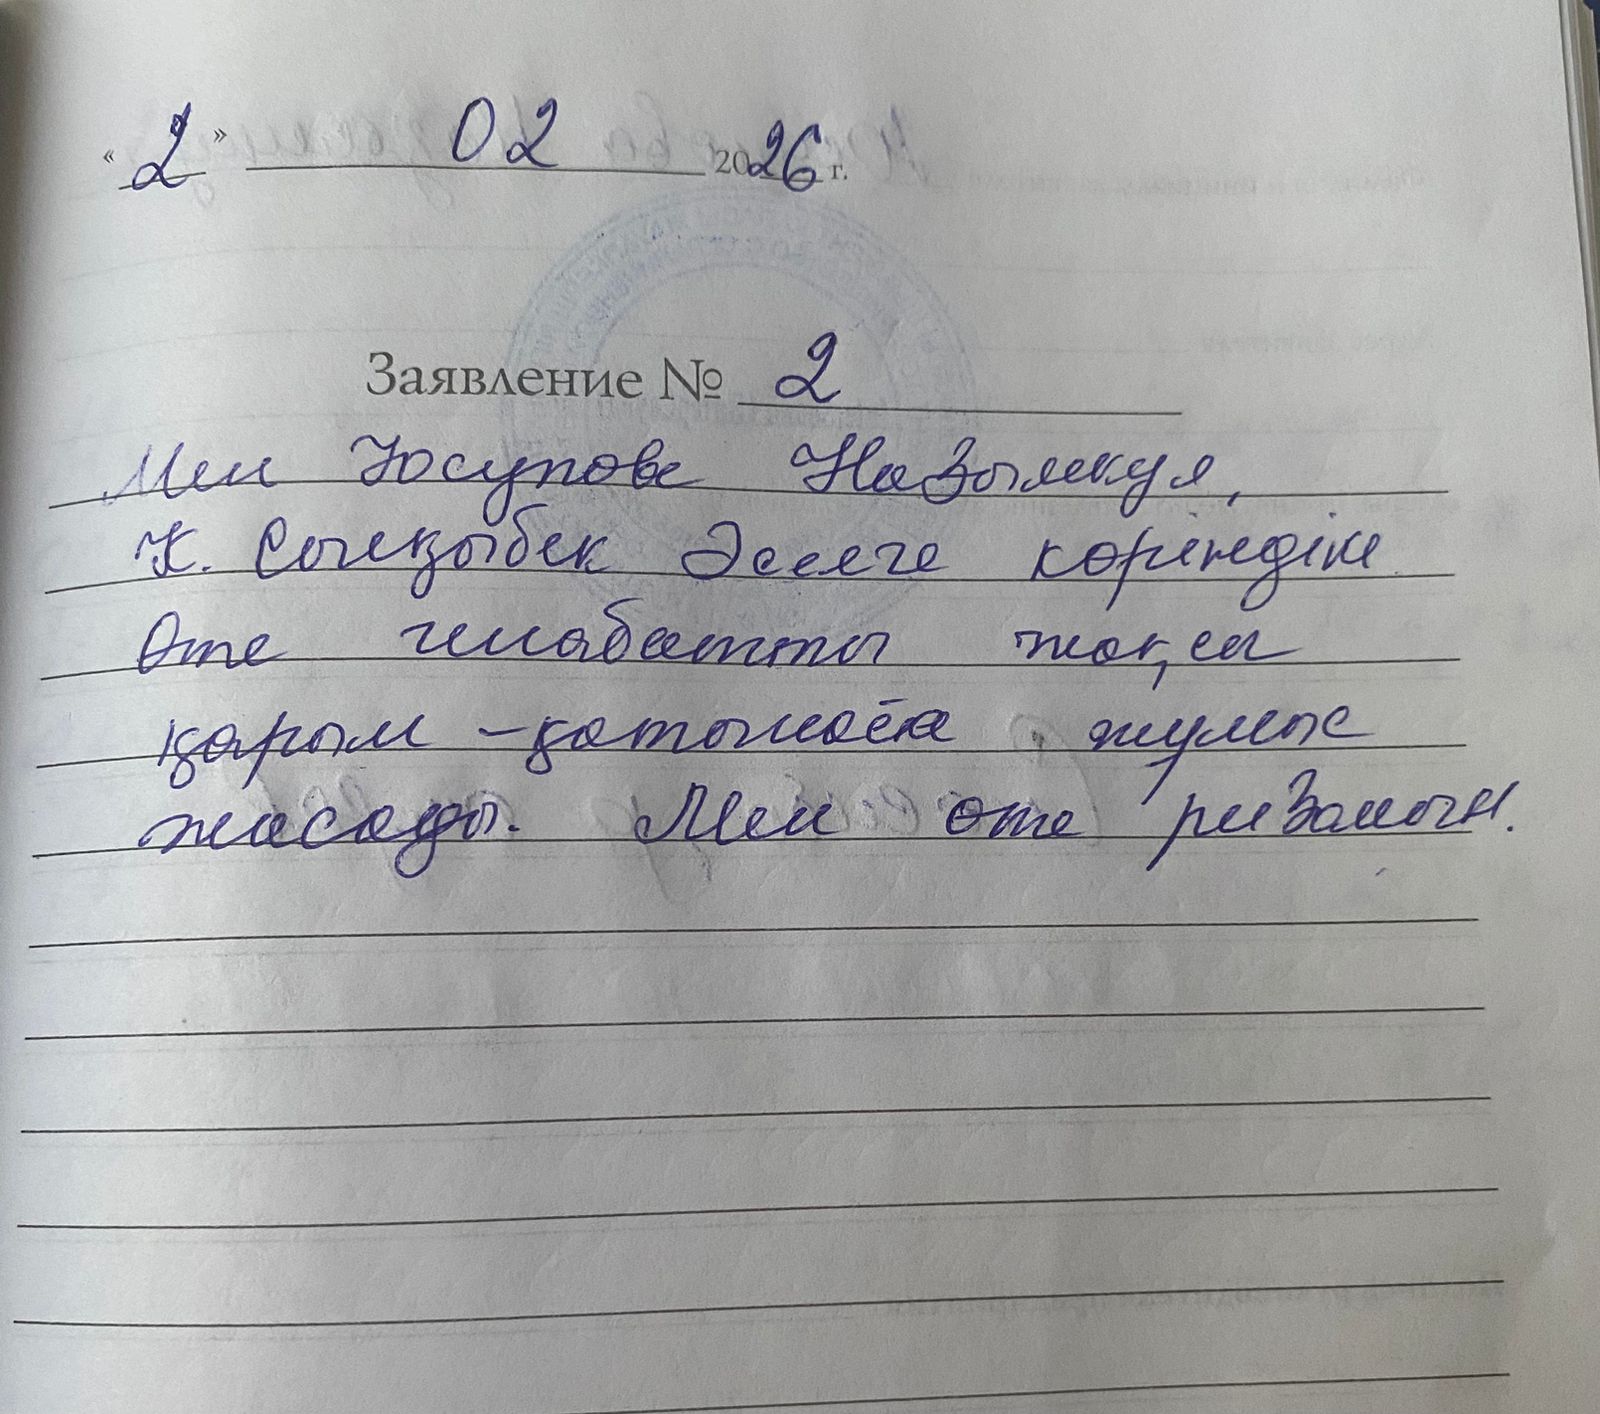 «2» 02 2026 г.
Заявление № 2
Мен Юсупова Назымкул,
К. Сынқыбек Әселге көріндім
Өте шиабатты жақсы
қарым-қатынаста жұмыс
жасады. Мен өте ризамын.